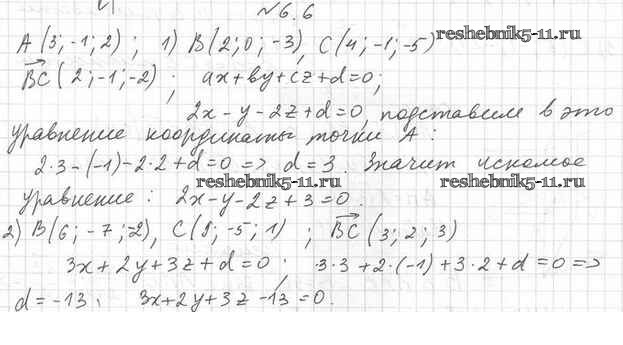 №6.6
A(3;-1;2); 1) B(2;0;-3), C(4;-1;-5) reshebnik5-11.ru
BC(2;-1;-2); ax+by+cz+d=0;
2x-y-2z+d=0, подставим в это
уравнение координаты точки A:
2·3-(-1)-2·2+d=0 => d=3. Значит искомое
reshebnik5-11.ru reshebnik5-11.ru
уравнение: 2x-y-2z+3=0.
2) B(6;-7;-2), C(9;-5;1); BC(3;2;3)
3x+2y+3z+d=0; 3·3+2·(-1)+3·2+d=0 =>
d=-13; 3x+2y+3z-13=0.
reshebnik5-11.ru